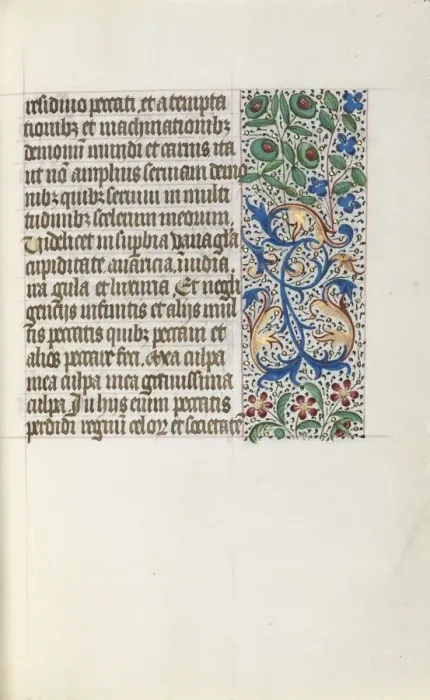 residiuo peccati. et a tempta
tionibꝫ et machinationibꝫ
demonū mundi et carnis ita
ut nō amplius seruiam demo
nibꝫ quibꝫ seruiui in multi
tudinibꝫ scelerum meorum.
Videlicet in supbia vana glā
cupiditate auaricia, inuidia
ira gula et luxuria. Et negli
gencijs infinitis et alijs mul
tis peccatis quibꝫ peccaui et
alios peccare feci. Mea culpa
mea culpa mea grauissima
culpa. In hijs enim peccatis
perdidi regnū celoꝝ et societatē